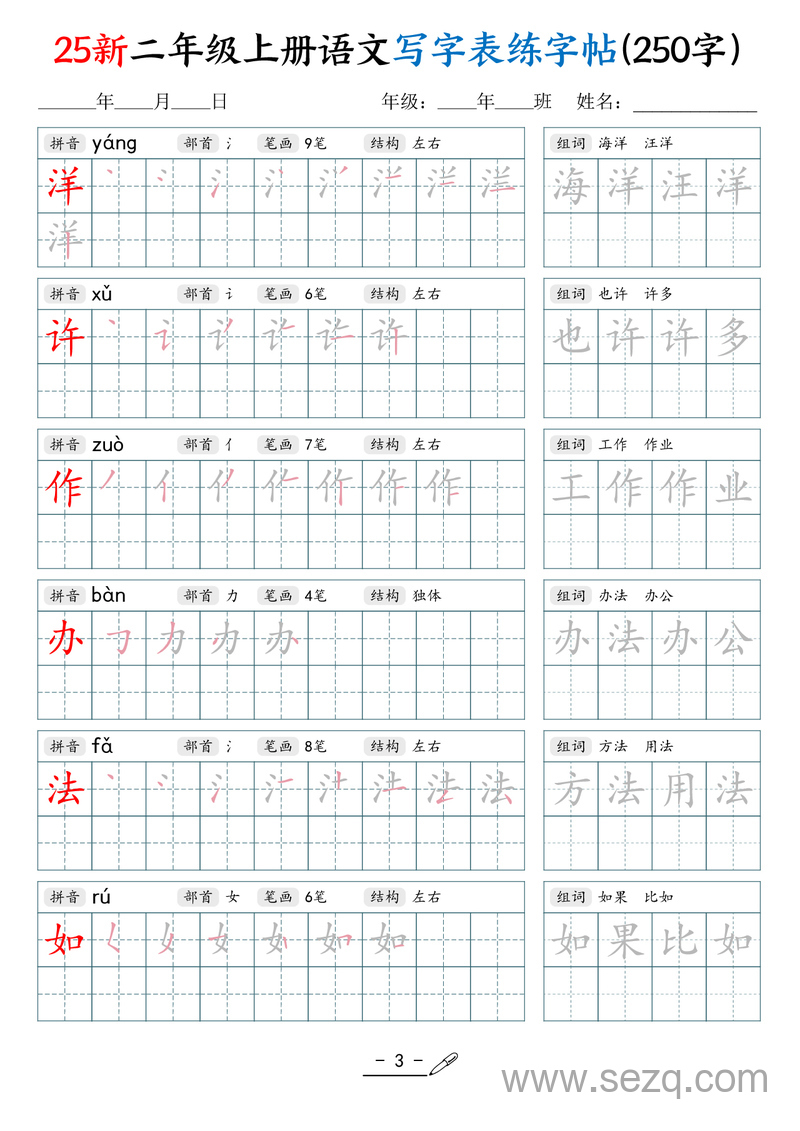 25新二年级上册语文写字表练字帖(250字)
______年____月____日 年级：____年____班 姓名：____________
拼音 yáng 部首 氵 笔画 9笔 结构 左右 组词 海洋 汪洋
洋 丶 氵 海洋汪洋
洋
拼音 xǔ 部首 讠 笔画 6笔 结构 左右 组词 也许 许多
许 丶 讠 许 也许许多
拼音 zuò 部首 亻 笔画 7笔 结构 左右 组词 工作 作业
作 丿 亻 作 工作作业
拼音 bàn 部首 力 笔画 4笔 结构 独体 组词 办法 办公
办 ㇆ 力 办 办法办公
拼音 fǎ 部首 氵 笔画 8笔 结构 左右 组词 方法 用法
法 丶 氵 法 方法用法
拼音 rú 部首 女 笔画 6笔 结构 左右 组词 如果 比如
如 𡿨 女 如 如果比如
- 3 -
www.sezq.com